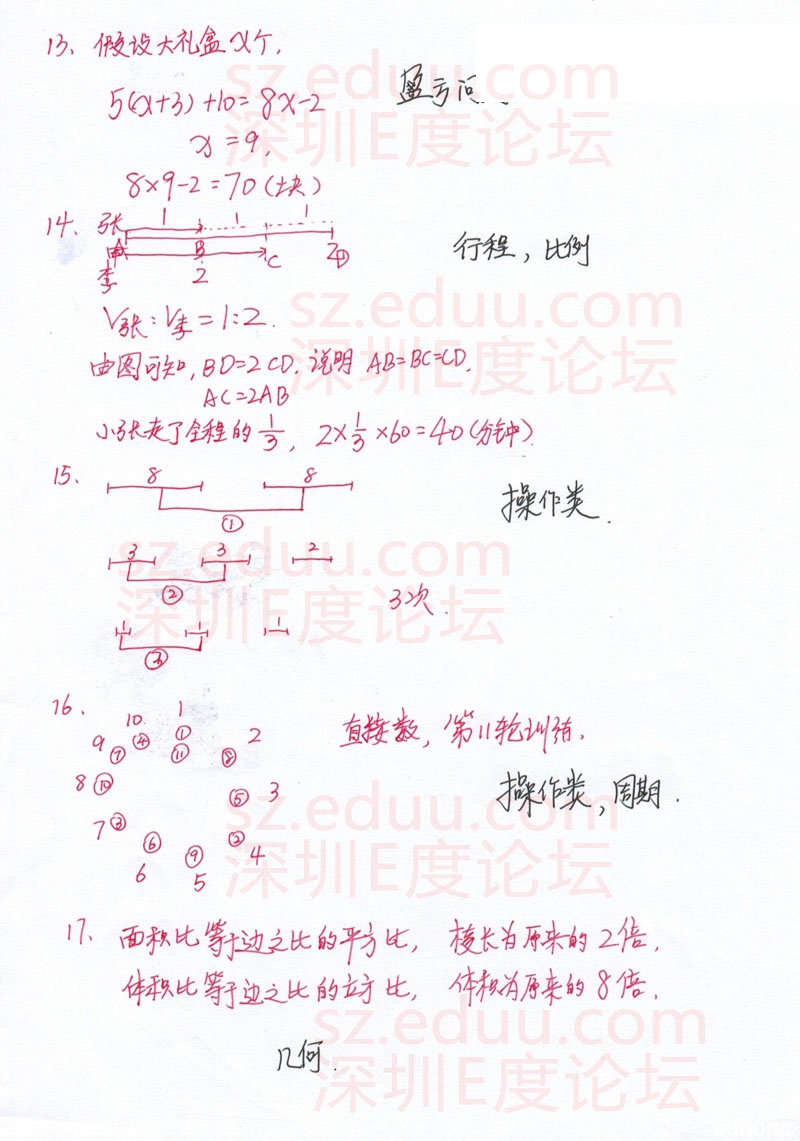 13、假设大礼盒x个,
5(x+3)+10=8x-2 盈亏问
x=9,
8×9-2=70(块)
14、张 1 1 1
A B C D
李 2 2
行程,比例
V张:V李=1:2.
由图可知,BD=2CD,说明 AB=BC=CD,
AC=2AB
小张走了全程的1/3, 2×1/3×60=40(分钟)
15、 8 8
① 操作类.
3 3 2
② 3次.
1 1 1
③
16、
10 1
9 ④ ① 2 直接数,第11轮训练.
⑦ ⑪ ⑧
8 ⑩ ⑤ 3 操作类,周期.
7 ③ ②
⑥ ⑨ 4
6 5
17、面积比等于边之比的平方比, 棱长为原来的2倍,
体积比等于边之比的立方比, 体积为原来的8倍.
几何.
sz.eduu.com
深圳E度论坛
sz.eduu.com
深圳E度论坛
sz.eduu.com
深圳E度论坛
sz.eduu.com
深圳E度论坛
sz.eduu.com
深圳E度论坛